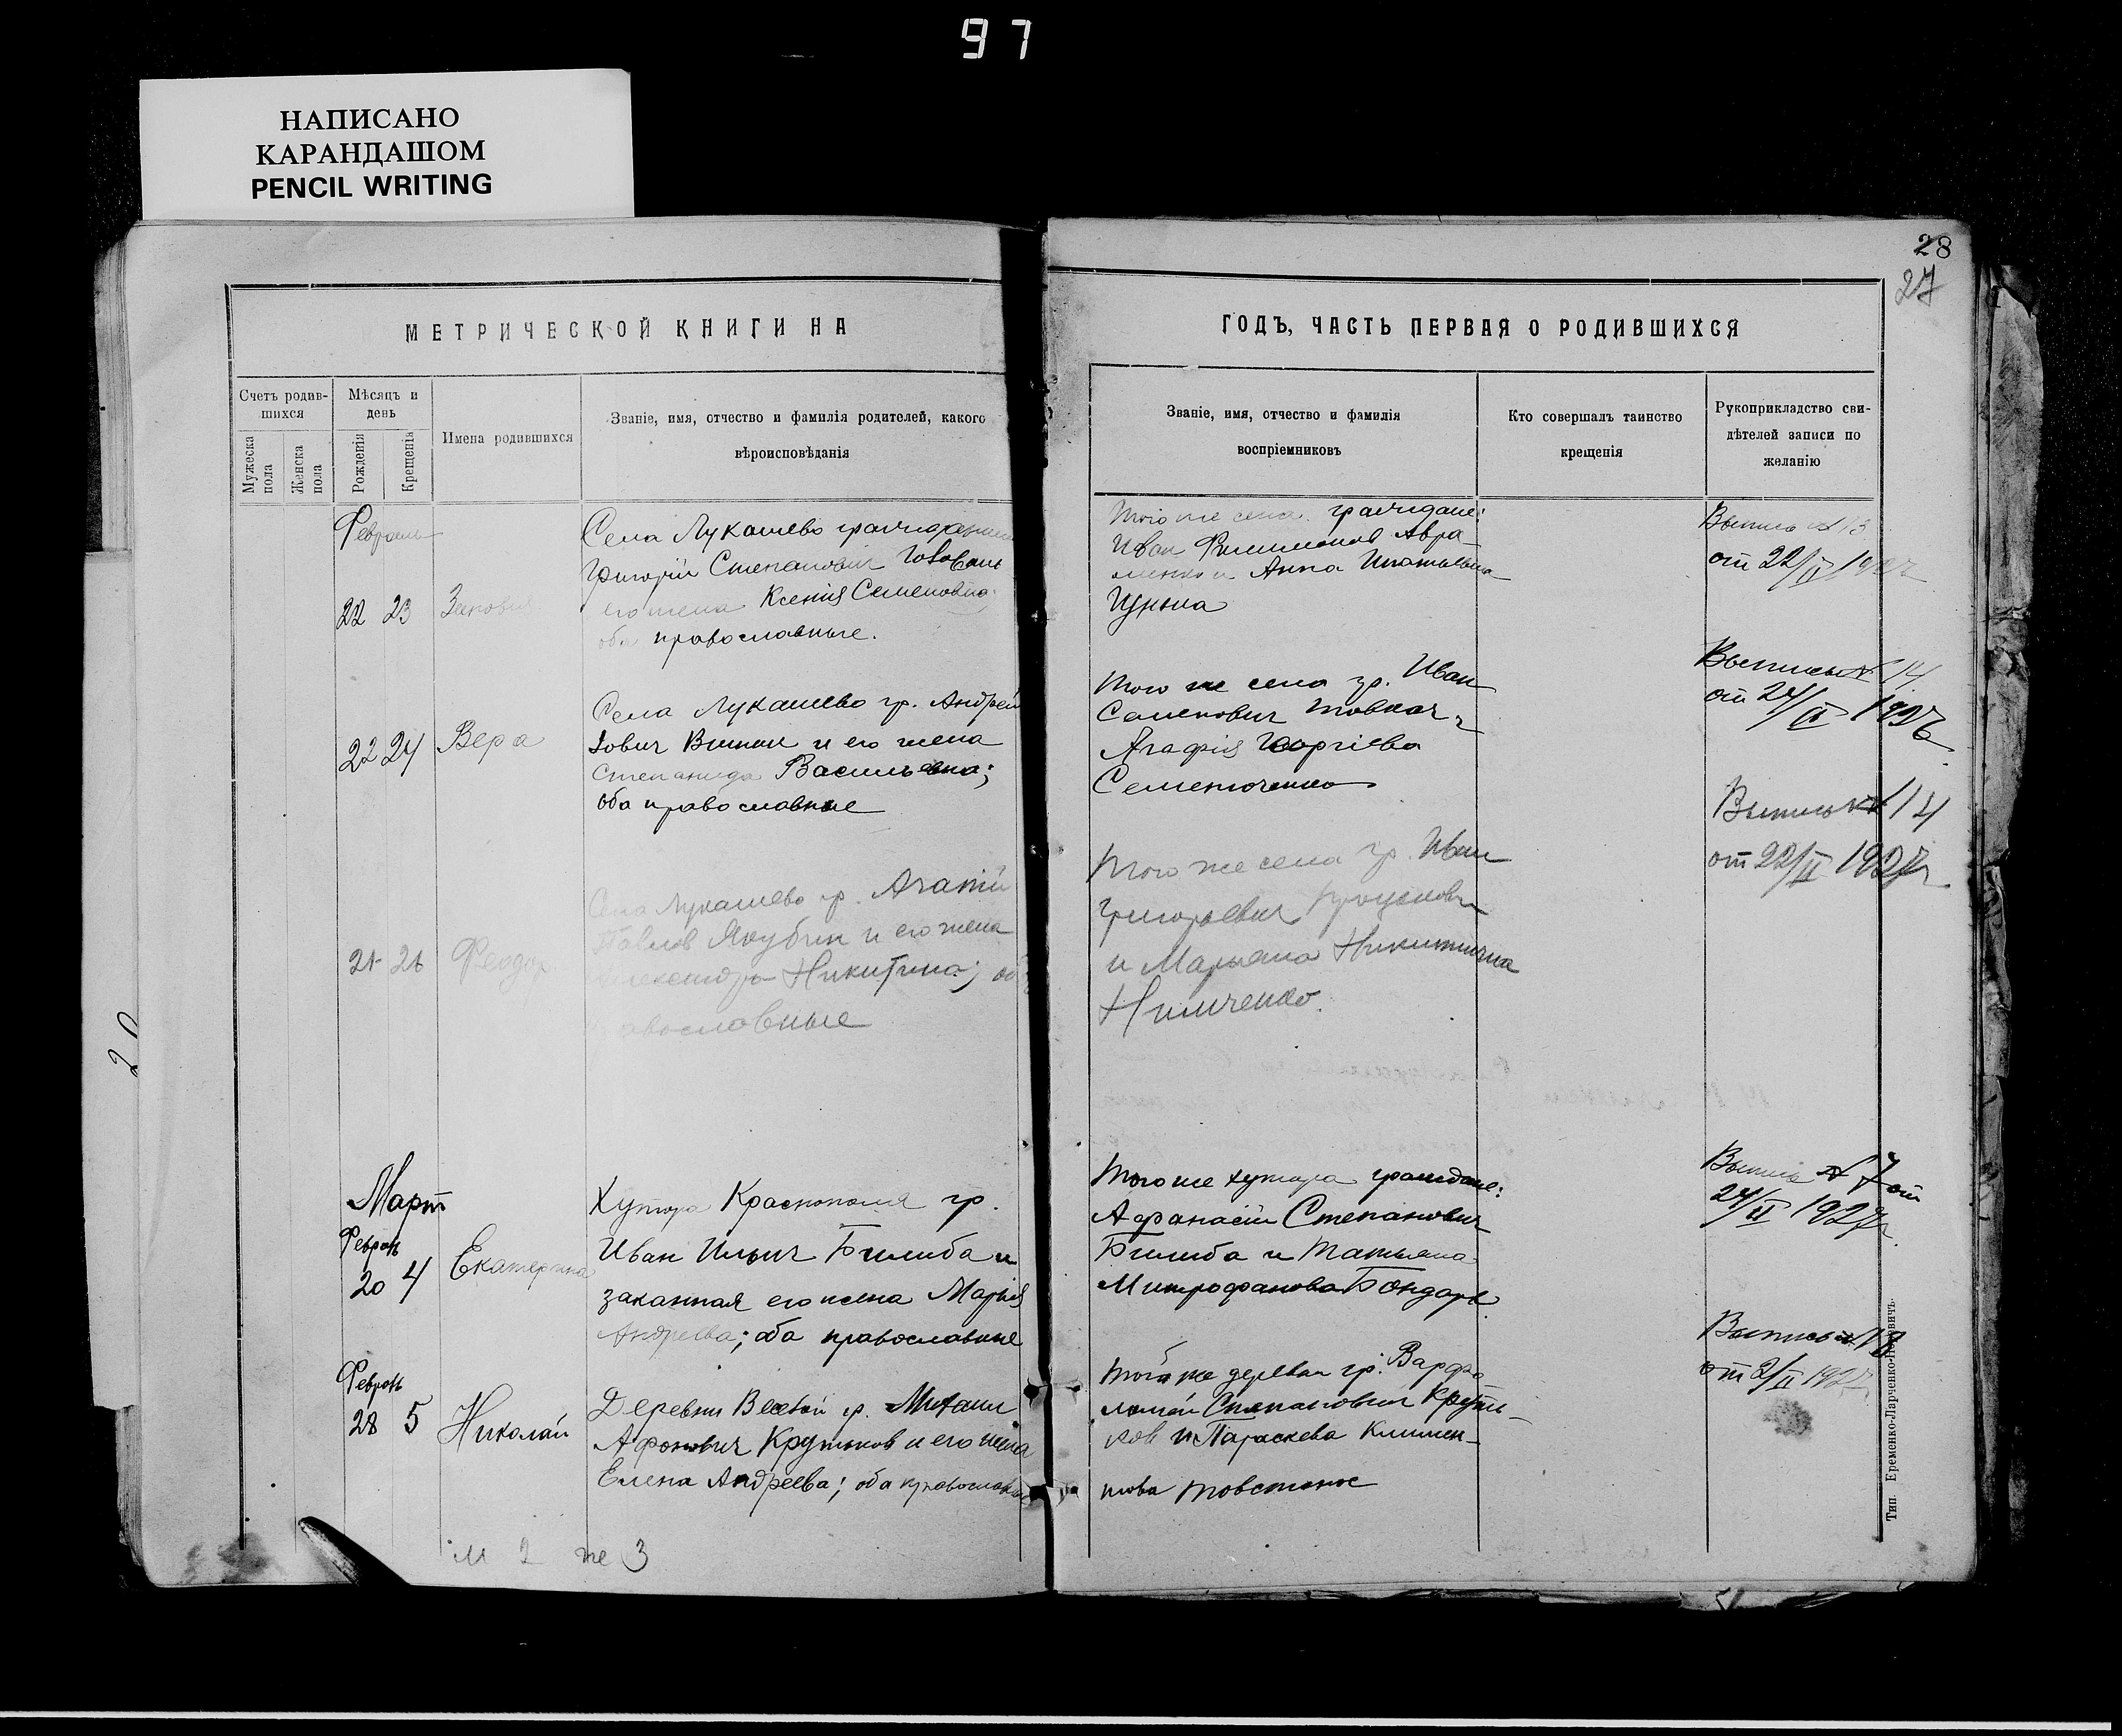 97
НАПИСАНО
КАРАНДАШОМ
PENCIL WRITING
28
27
МЕТРИЧЕСКОЙ КНИГИ НА
ГОДЪ, ЧАСТЬ ПЕРВАЯ О РОДИВШИХСЯ
Счетъ родив-
шихся
Мужеска
пола
Женска
пола
Мѣсяцъ и
день
Рожденія
Крещенія
Имена родившихся
Званіе, имя, отчество и фамилія родителей, какого
вѣроисповѣданія
Званіе, имя, отчество и фамилія
воспріемниковъ
Кто совершалъ таинство
крещенія
Рукоприкладство сви-
дѣтелей записи по
желанію
Февраль
22 23
Села Лукашево
Григорій Степанович
его жена Ксенія Семеновна;
оба православные.
того же села граждане:
Иван Авра-
менко и Анна Игнатьевна
Выпись № 13
от 22/II 1927
22 24 Вера
Села Лукашево гр. Андрей
и его жена
Степанида Васильевна;
оба православные
того же села гр. Иван
Семенович
Агафія Георгіева
Семенюченко
Выпись № 14
от 24/II 1927
21 26 Феодор
Села Лукашево гр. Агапій
Павлов Якубин и его жена
Никитина;
православные
того же села гр. Иван
Григорьевич
и Марьяна Никитична
Нимченко.
Выпись № 14
от 22/II 1927
Март
Февраль
20 4 Екатерина
Хутора Краснополя гр.
Иван Ильич Билиба и
законная его жена Марія
Андреева; оба православные
того же хутора граждане:
Афанасій Степанович
Билиба и Татьяна
Митрофанова Бондарь
Выпись № 7 от
24/II 1927
Февраль
28 5 Николай
Деревни Веселой гр. Михаил
Афонович Крутьков и его жена
Елена Андреева; оба православные
той же деревни гр. Варфо
ломей Степанович Круть-
ков и Параскева Климен-
това Товстонос
Выпись № 18
от 2/II 1927
м 2 же 3
20
Тип. Еременко-Ларченко-